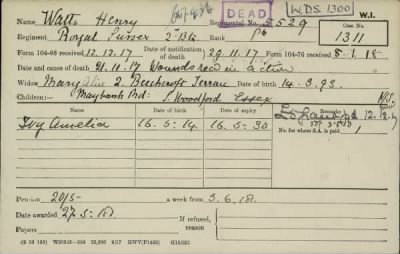 DEAD W.D.S. 1300 W.I.
Name Watts Henry Regimental No. 2529 Case No.
Regiment Royal Fusiers 2nd Btn. Rank Pte 1311
Form 104-88 received 12.12.17 Date of notification of death 29.11.17 Form 104-76 received 8-1-18
Date and cause of death 21.11.17 Wounds recd in action
Widow Mary Alice 2. Beechcroft Terrace Date of birth 14.3.93.
Children:— Maybank Rd: S. Woodford Essex
Date of birth Date of expiry Remarks
Ivy Amelia 16.5.14 16.5.30 £5 12.12.17
No. for whom S.A. is paid 1
Pension 20/5- a week from 3.6.18.
Date awarded 27.5.18. If refused, reason
Papers